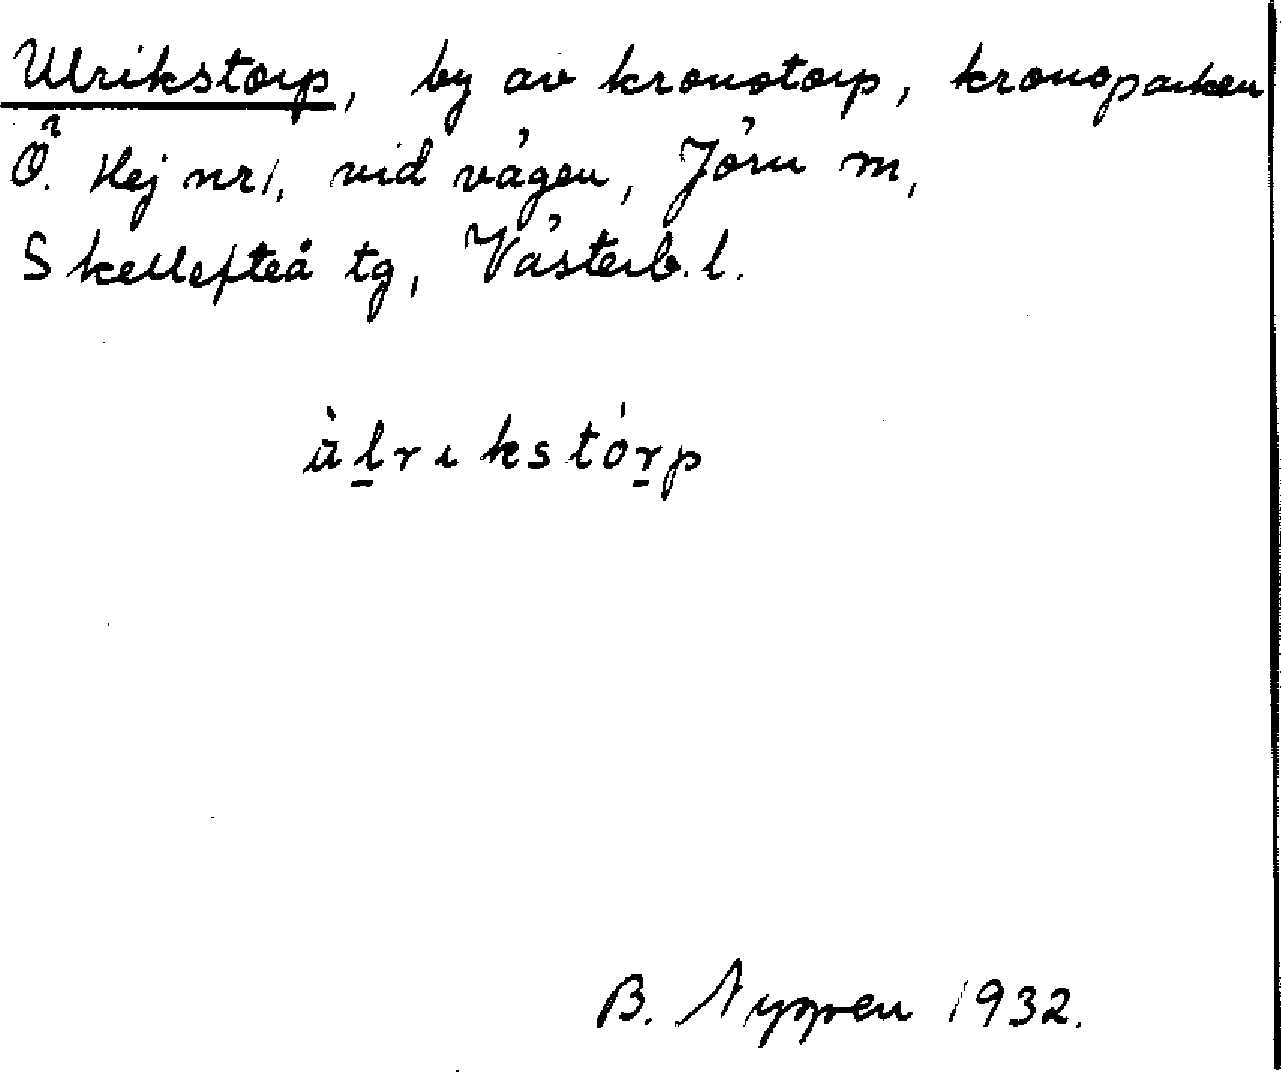 Ulrikstorp, by av kronotorp, kronoparken
Ö. Hej nr 1, vid vägen, Jörn m,
Skellefteå tg, Västerb. l.
ùl̠rıkstórp
B. Nygren 1932.